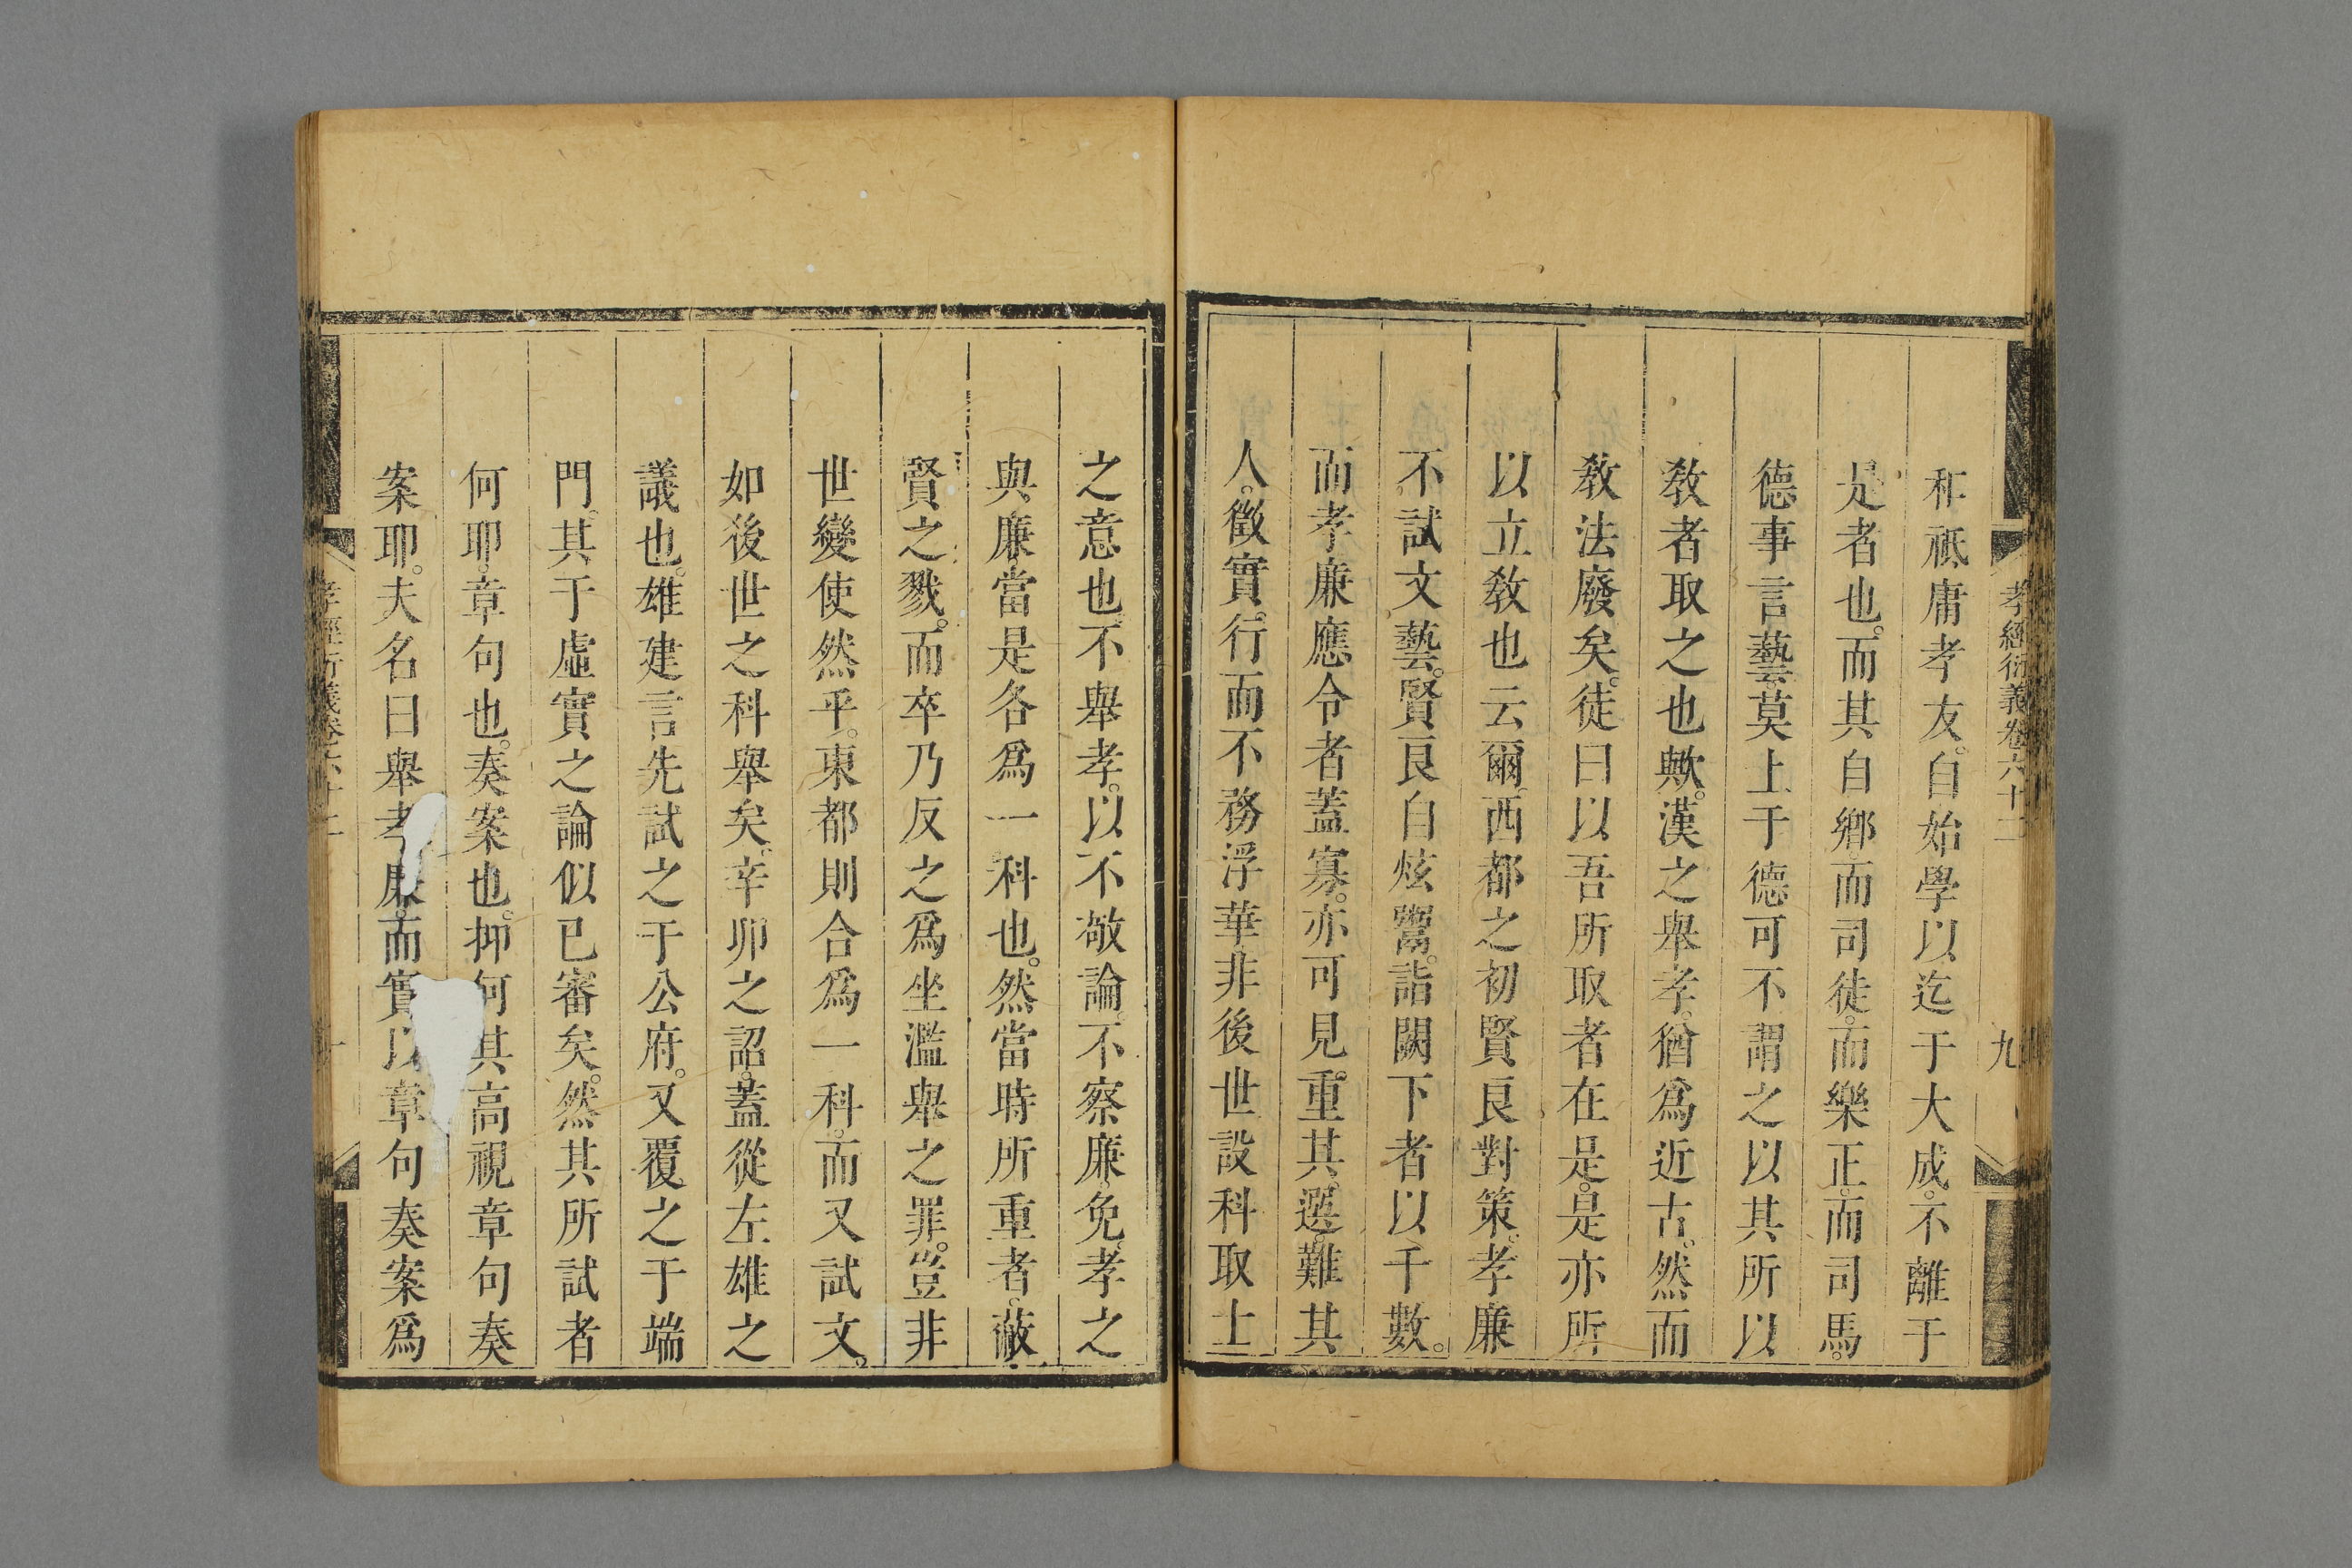 孝經衍義卷六十二
九
和祗庸孝友。自始學以迄于大成。不離于
是者也。而其自鄉而司徒。而樂正。而司馬。
德事言藝莫上于德可不謂之以其所以
教者取之也歟。漢之舉孝。猶爲近古。然而
教法廢矣。徒曰以吾所取者在是。是亦所
以立教也云爾。西都之初賢良對策。孝廉
不試文藝。賢良自炫鬻。詣闕下者以千數。
而孝廉應令者蓋寡。亦可見重其選。難其
人。徵實。行而不務浮華非後世設科取士
之意也。不舉孝。以不敬論。不察廉。免。孝之
與廉。當是各爲一科也。然當時所重者。蔽
賢之戮。而卒乃反之爲坐濫舉之罪。豈非
世變使然乎。東都則合爲一科。而又試文。
如後世之科舉矣。辛卯之詔。蓋從左雄之
議也。雄建言先試之于公府。又覆之于端
門。其于虛實之論似已審矣。然其所試者
何耶。章句也。奏案也。抑何其高視章句奏
案耶。夫名曰舉孝廉。而實以章句奏案爲
孝經衍義卷六十二